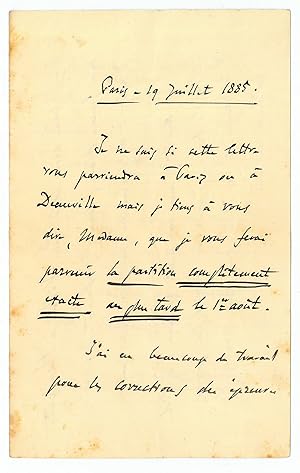 Paris – 19 Juillet 1885.
Je ne sais si cette lettre
vous parviendra à Paris ou à
Deauville mais je tiens à vous
dire, Madame, que je vous ferai
parvenir la partition complètement
exacte au plus tard le 1er août.
J'ai eu beaucoup de travail
pour les corrections des épreuves